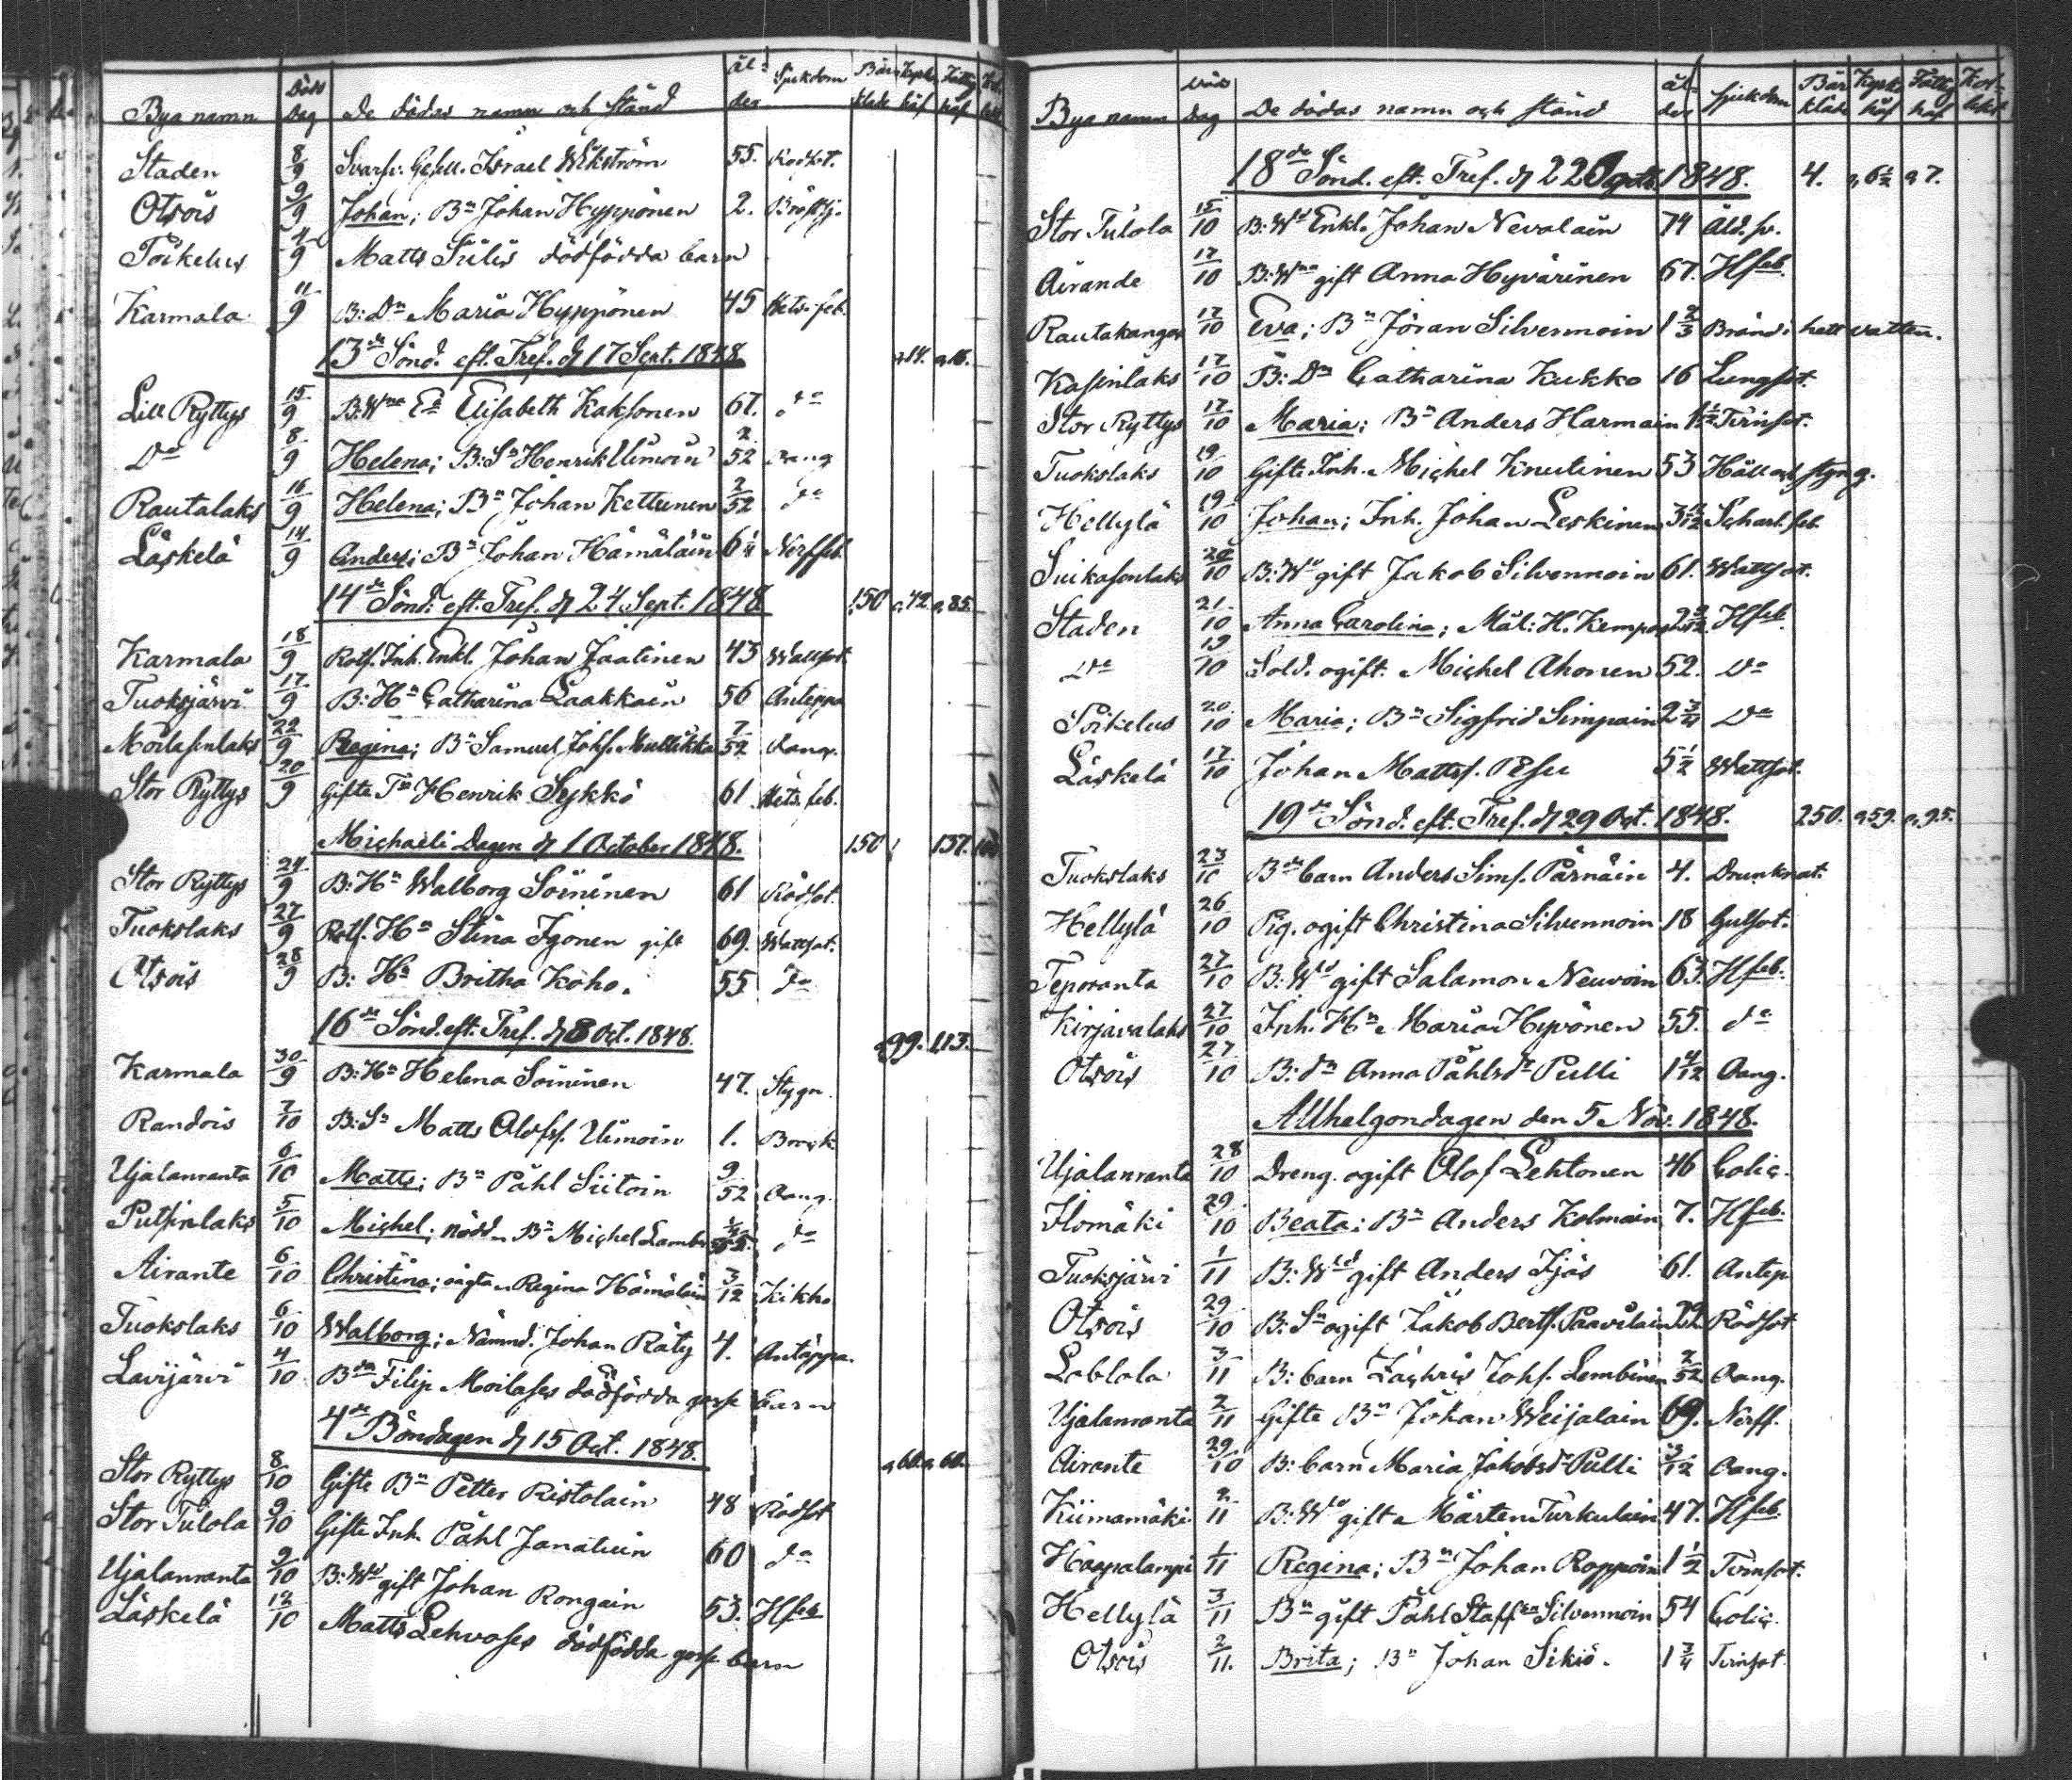 Bya namn Döds dag De dödas namn och stånd Ål- der Sjukdom Bår kläde Kyrk håf Fattig håf
Staden 8/9 Svarfv: Gesell. Israel Wikström 55. Rödsot.
Otsois 9/9 Johan; Bn Johan Hyppönen 2. Bröstsj.
Poikelus 4/9 Matts Siilis dödfödda barn
Karmala 11/9 B: Dn Maria Hyppönen 45 Hets. feb.
13de Sönd. eft. Tref. d 17 Sept. 1848.
Lill Ryttys 15/9 B: Wna Ea Elisabeth Kaksonen 67. do
Do 8/9 Helena; B: Sn Henrik Uimoin 2/52 Aang
Rautalaks 16/9 Helena; Bn Johan Kettunen 2/52 do
Läskelä 14/9 Anders; Bn Johan Hämäläin 6 1/4 Nerffeb.
14de Sönd. eft. Tref. d 24 Sept. 1848 150 42. 85.
Karmala 18/9 Rotf. Inh. Enkl. Johan Jaatinen 43 Wattsot
Tuoksjärvi 17/9 B: Hn Catharina Laakkain 56 Anteppa
Moilasenlaks 22/9 Regina; Bn Samuel Johs. Mullikka 7/52 Aang.
Stor Ryttys 20/9 Gifte Tn Henrik Sykkö 61 Hets. feb.
Michaeli Dagen d 1 October 1848. 150 137.
Stor Ryttys 24/9 B: Hn Walborg Soininen 61 Rödsot.
Tuokslaks 27/9 Rotf. Hn Stina Igonen gift 69. Wattsot.
Otsois 28/9 B: Hn Britha Koho. 55 do
16de Sönd. eft. Tref. d 8 Oct. 1848. 99. 113.
Karmala 30/9 B: Hn Helena Soininen 47. Stygn.
Randois 7/10 B: Sn Matts Olofss. Uimoin 1. Bråck
Ujalanranta 6/10 Matts; Bn Påhl Siitoin 9/52 Aang.
Putsinlaks 5/10 Michel; nödd. Bn Michel Lamb do
Airante 6/10 Christina; oägta Regina Hämäläin 3/12 Kikho
Tuokslaks 6/10 Walborg; Nämnd. Johan Räty 4. Antäppa.
Lavijärvi 4/10 Bdn Filip Moilases dödfödda gosse barn
4de Böndagen d 15 Oct. 1848. 60. 60.
Stor Ryttys 8/10 Gifte Bn Petter Ristolain 48 Rödsot
Stor Tulola 9/10 Gifte Inh. Påhl Janatuin 60 do
Ujalanranta 9/10 B: Wd gift Johan Rongain 53. Hfeb
Läskelä 12/10 Matts Lehvoses dödfödda gosse barn
Bya namn Döds dag De dödas namn och stånd Ål- der Sjukdom Bår kläde Kyrk håf Fattig håf
18de Sönd. eft. Tref. d 22 Octob 1848. 4. 6 1/2 7.
Stor Tulola 15/10 B: Wd Enkl. Johan Nevalain 74 Åld. sv.
Airande 17/10 B: Wna gift Anna Hyvärinen 67. Hfeb.
Rautakangas 17/10 Eva; Bn Jöran Silvennoin 1 2/3 Bränd i hett vatten.
Kasinlaks 17/10 B: Dn Catharina Kukko 16 Lungsot.
Stor Ryttys 17/10 Maria; Bn Anders Harmain 1 1/2 Tvinsot.
Tuokslaks 19/10 Gifte Inh. Michel Knutinen 53 Håll och styng.
Hellylä 19/10 Johan; Inh. Johan Leskinen Scharl. feb
Suikasenlaks 20/10 B: Wd gift Jakob Silvennoin 61. Wattsot.
Staden 21/10 Anna Carolina; Mål: H. Kempas Hfeb.
Do 19/10 Sold. ogift. Michel Ahonen 52. Do
Poikelus 20/10 Maria; Bn Sigfrid Simpain 2 3/4 Do
Läskelä 17/10 Johan Mattss. Pesu 5 1/2 Wattsot.
19de Sönd. eft. Tref. d 29 Oct. 1848. 250. 59. 95.
Tuokslaks 23/10 Bde barn Anders Sims. Pärnäin 4. Drunknat.
Hellylä 26/10 Pig. ogift Christina Silvennoin 18 Gulsot.
Teporanta 27/10 B: Wd gift Salamon Neuvoin 63. Hfeb.
Kirjavalaks 27/10 Inh: Hn Maria Hyvönen 55. do
Otsois 27/10 B: dn Anna Påhlsdr Pulli 1 4/12 Aang.
Allhelgondagen den 5 Nov. 1848.
Ujalanranta 28/10 Dreng. ogift Olof Lehtonen 46 Colic.
Ilomäki 29/10 Beata; Bn Anders Kolmain 7. Hfeb.
Tuoksjärvi 1/11 B: Wd gift Anders Ijäs 61. Antep
Otsois 29/10 B: Sn ogift Jakob Bertss. Paavilain Rödsot
Lablola 3/11 B: barn Zachris Johs. Lembinen 2/52 Aang.
Ujalanranta 2/11 Gifte Bn Johan Weijalain 69. Nerff.
Airante 29/10 B: barn Maria Jakobsdr Pulli 3/12 Aang.
Kiimamäki 2/11 B: Wd gift Mårten Turkulain 47. Hfeb.
Haapalampi 1/11 Regina; Bn Johan Roppoin 1 1/2 Tvinsot.
Hellylä 3/11 Bn gift Påhl Staffsn Silvennoin 54 Colic.
Otsois 2/11. Brita; Bn Johan Sikiö. 1 3/4 Tvinsot.